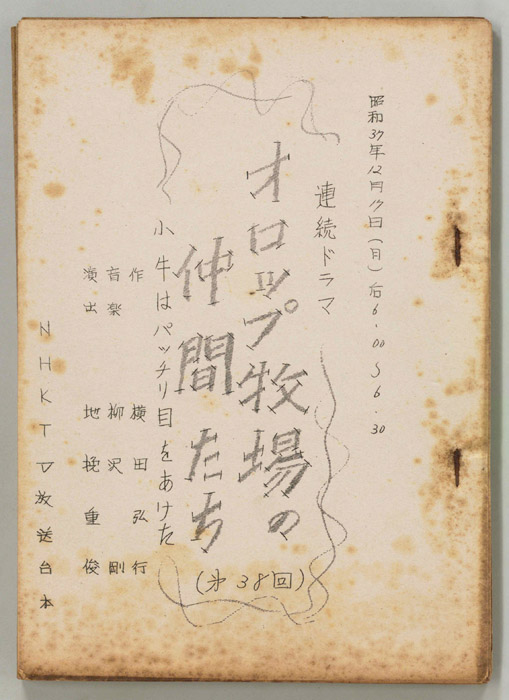 昭和37年12月17日(月)后6.00〜6.30
連続ドラマ
オロップ牧場の
仲間たち
(才38回)
小牛はパッチリ目をあけた
作 横田弘行
音楽 柳沢剛
演出 地挽重俊
NHKTV放送台本